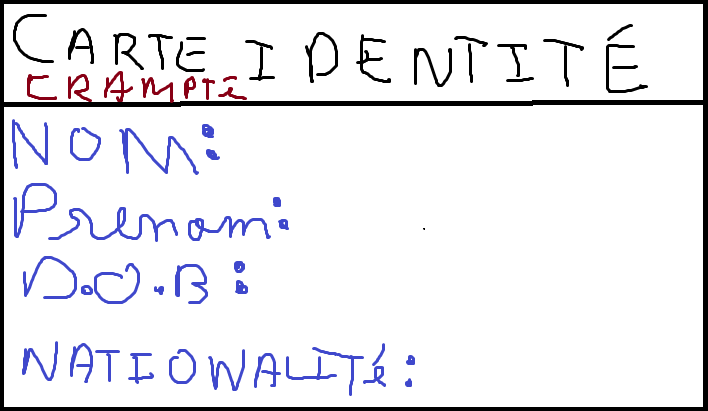 CARTE IDENTITÉ
CRAMPTÉ
NOM:
Prenom:
D.O.B:
NATIONALITé: